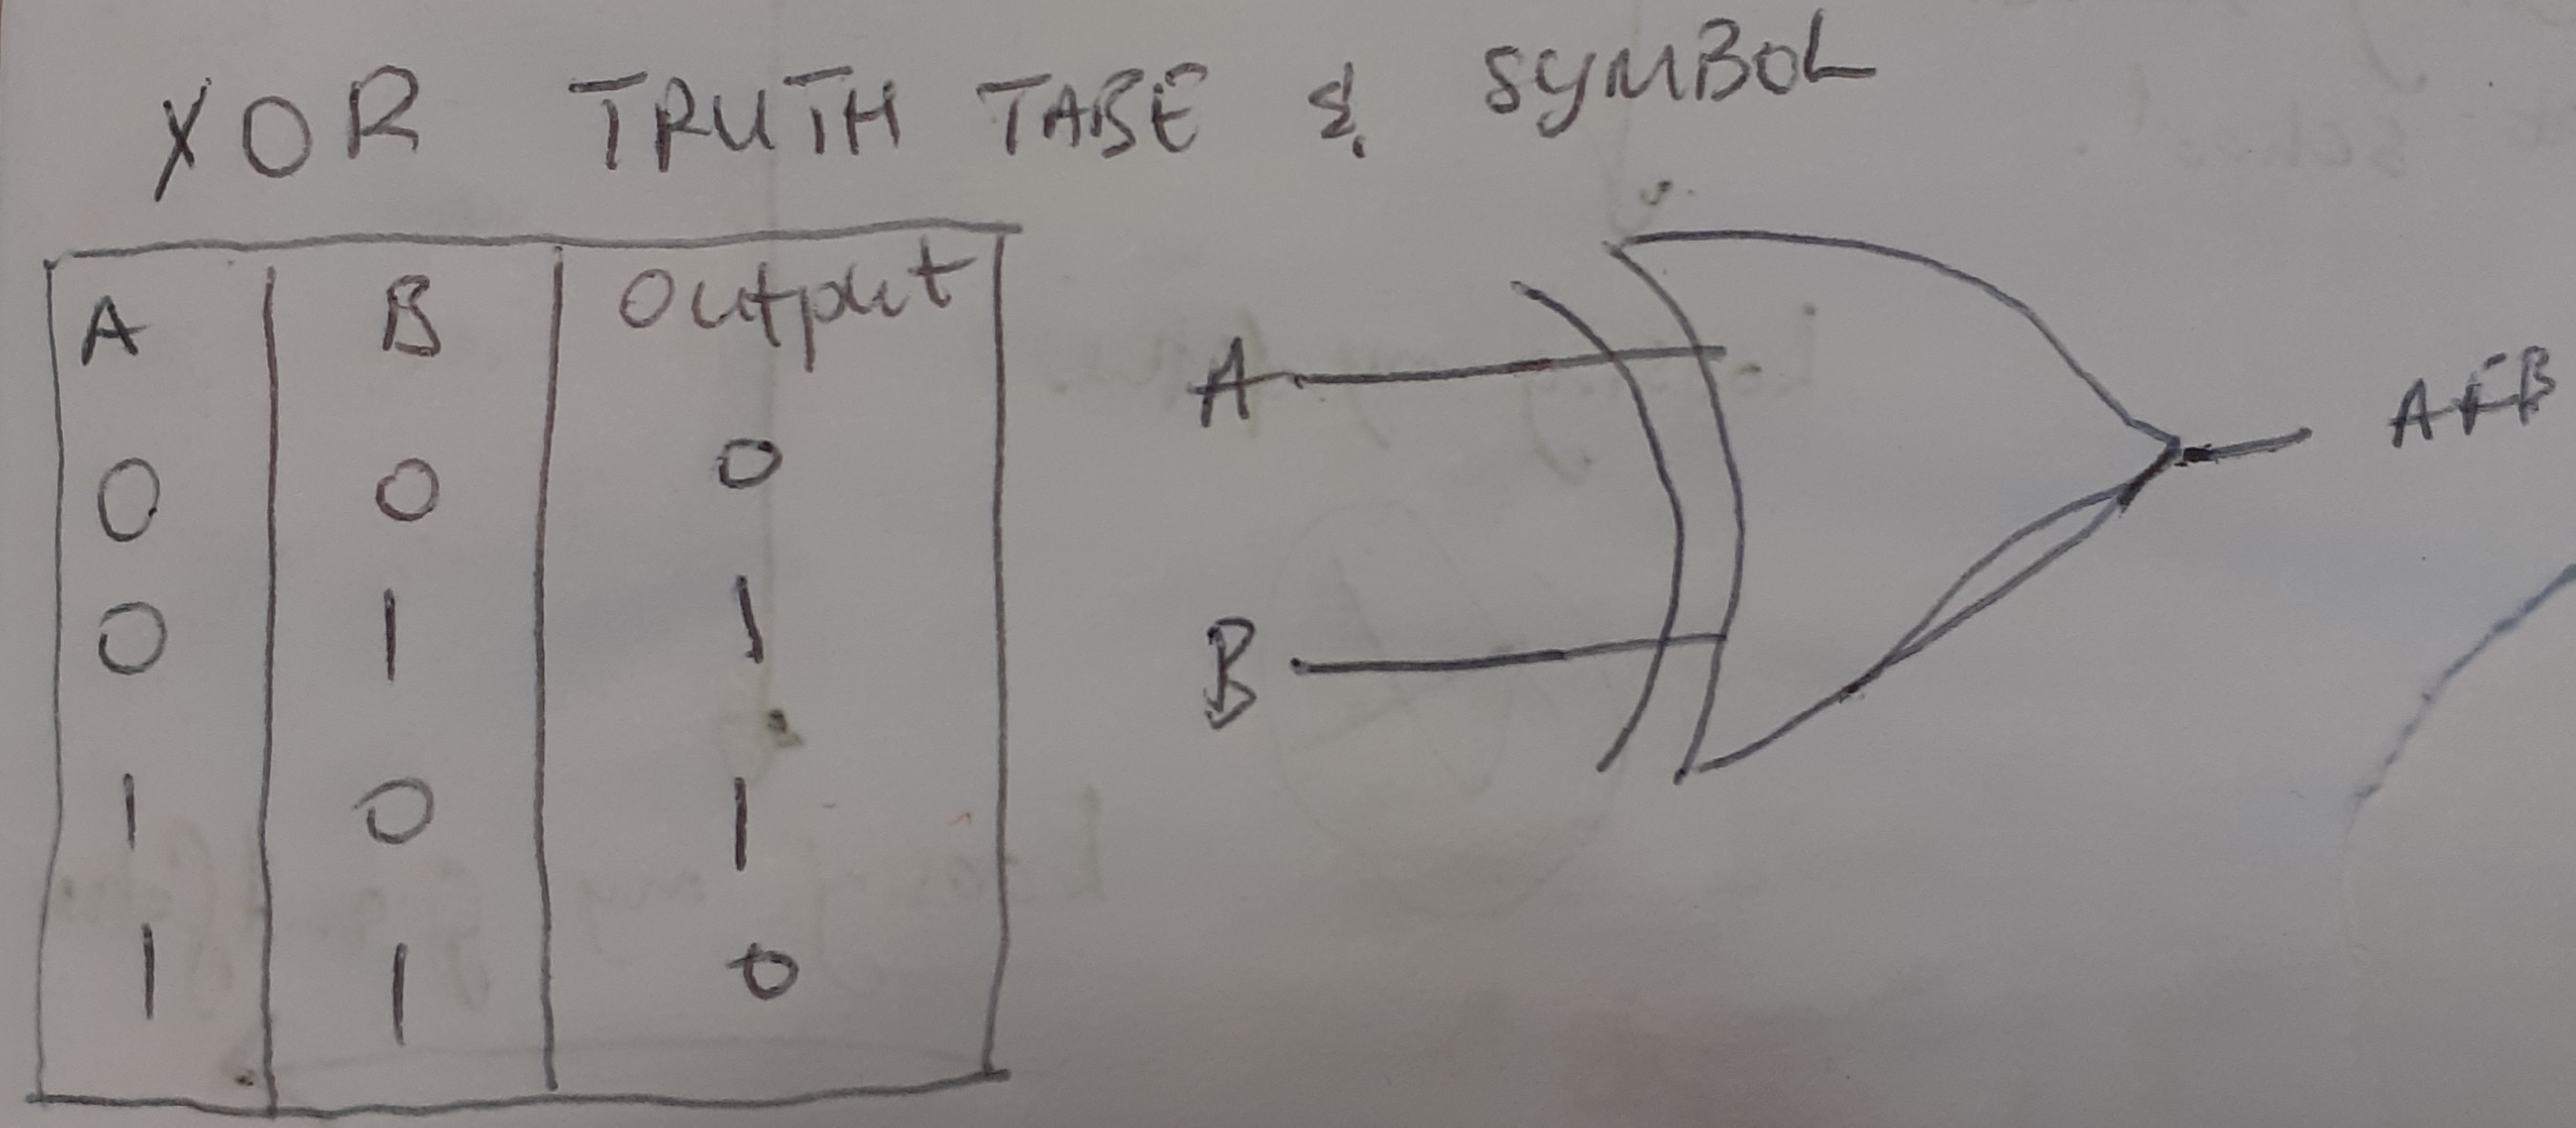 XOR TRUTH TABE & SYMBOL
A B Output
0 0 0
0 1 1
1 0 1
1 1 0
A
B
A+B